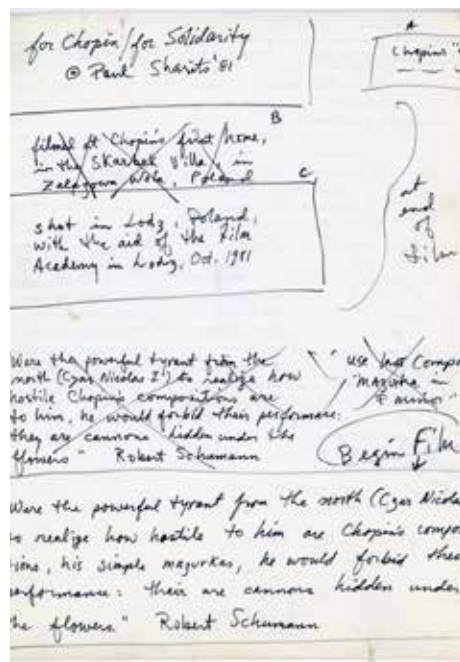 for Chopin/for Solidarity
© Paul Sharits '81
A
Chopin's "
B
filmed at Chopin's first home,
in the Skarbek Villa, in
Zelazowa Wola, Poland
C
shot in Lodz, Poland,
with the aid of the Film
Academy in Lodz, Oct. 1981
at
end
of
film
Were the powerful tyrant from the
north (Czar Nicolas I) to realize how
hostile Chopin's compositions are
to him, he would forbid their performance:
they are cannons hidden under the
flowers" Robert Schumann
use last Compo
"mazurka in
F minor"
Begin Film
Were the powerful tyrant from the north (Czar Nicola
o realize how hostile to him are Chopin's compo
ions, his simple mazurkas, he would forbid thei
erformance: their are cannons hidden under
he flowers." Robert Schumann